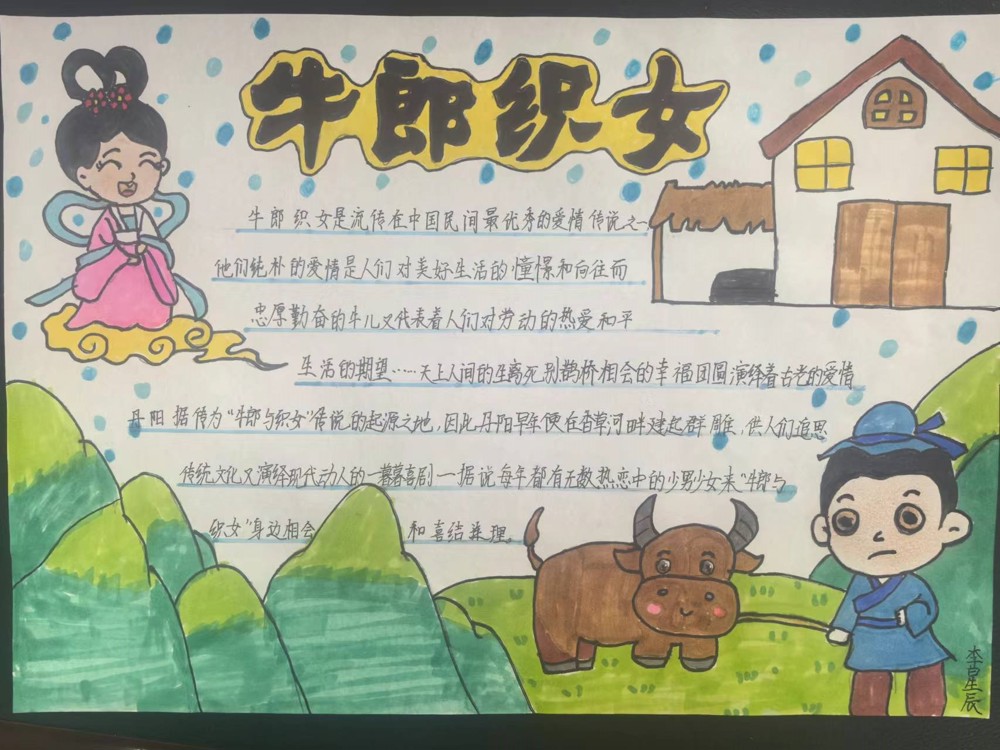 牛郎织女
牛郎织女是流传在中国民间最优秀的爱情传说之一
他们纯朴的爱情是人们对美好生活的憧憬和向往而
忠厚勤奋的牛儿又代表着人们对劳动的热爱和平
生活的期望……天上人间的生离死别鹊桥相会的幸福团圆演绎着古老的爱情
丹阳据传为“牛郎与织女”传说的起源之地，因此丹阳早年便在香草河畔建起群雕，供人们追思
传统文化又演绎现代动人的一幕幕喜剧一据说每年都有无数热恋中的少男少女来“牛郎与
织女”身边相会 和喜结连理。
李星辰